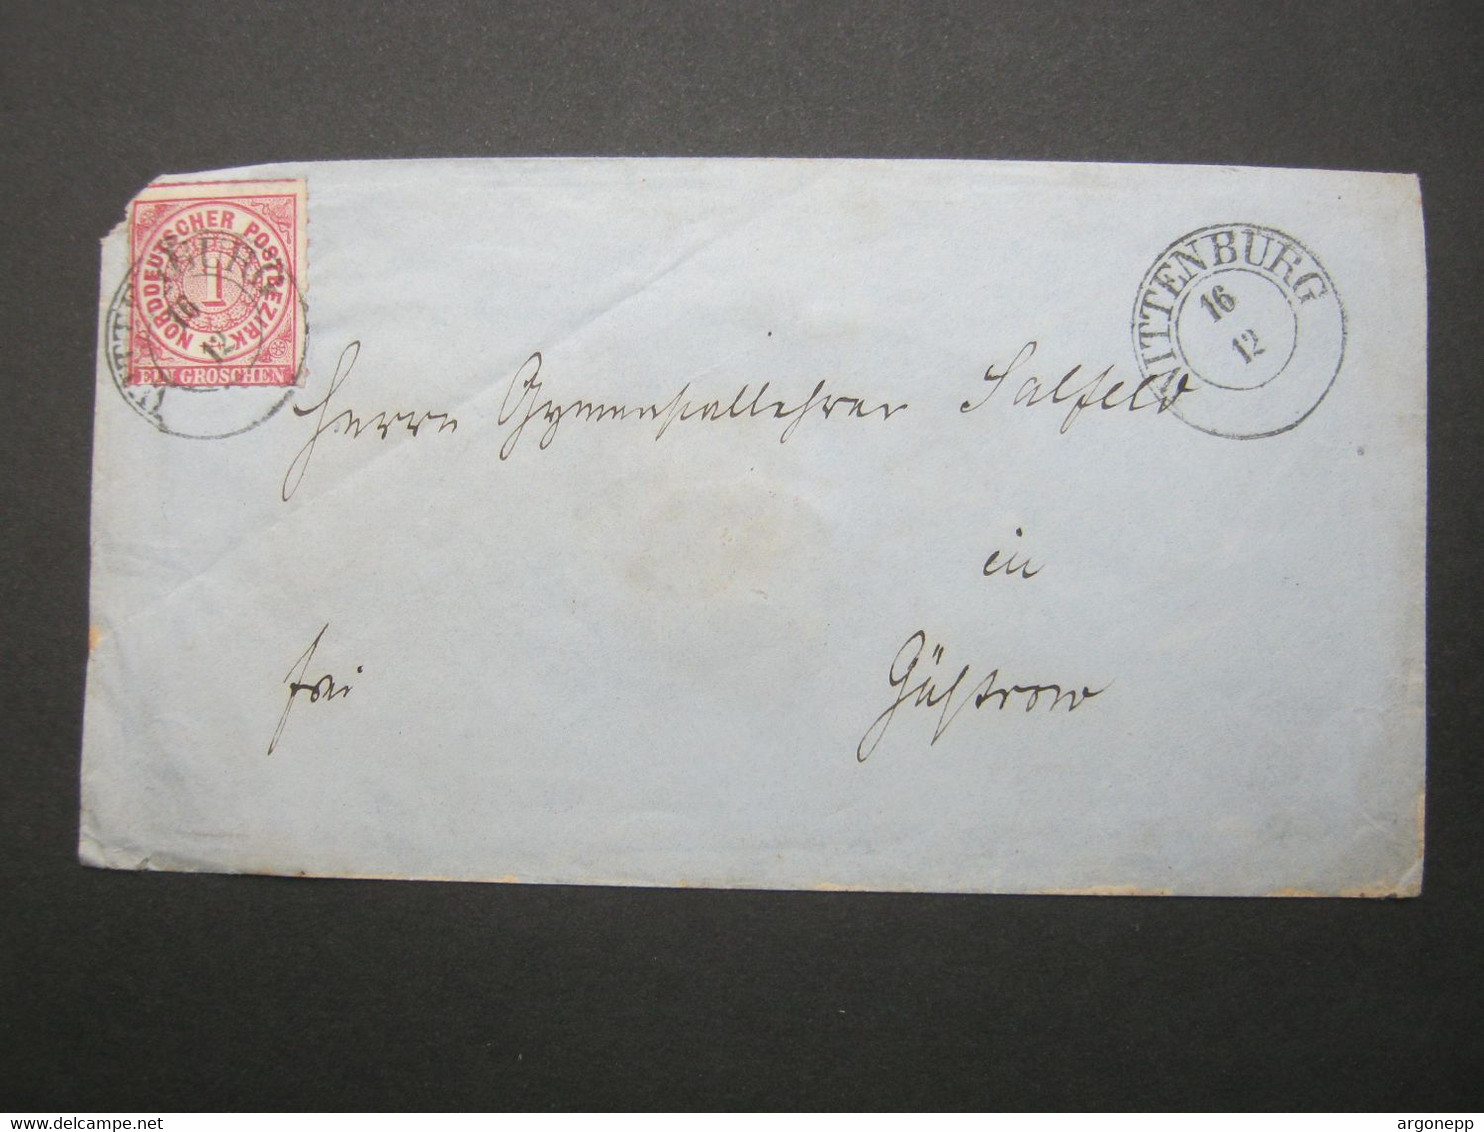 NORDDEUTSCHER POSTBEZIRK
1
EIN GROSCHEN
WITTENBURG
16
12
WITTENBURG
16
12
Herrn Gymnasiallehrer Salfeld
in
frei
Güstrow
delcampe.net
argonepp